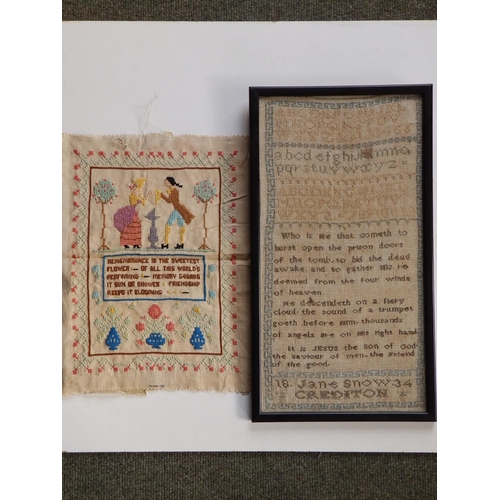 REMEMBRANCE IS THE SWEETEST
FLOWER — OF ALL THIS WORLD'S
PERFUMING — MEMORY GUARDS
IT SUN OR SHOWER · FRIENDSHIP
KEEPS IT BLOOMING
abcdefghi mno
pqrstuvwxyz
Who is He that cometh to
burst open the prison doors
of the tomb, to bid the dead
awake, and to gather His Re
deemed from the four winds
of heaven.
He descendeth on a fiery
cloud, the sound of a trumpet
goeth before Him, thousands
of angels are on His right hand.
It is JESUS the Son of God
the saviour of men, the friend
of the good.
18 Jane Snow 34
CREDITON